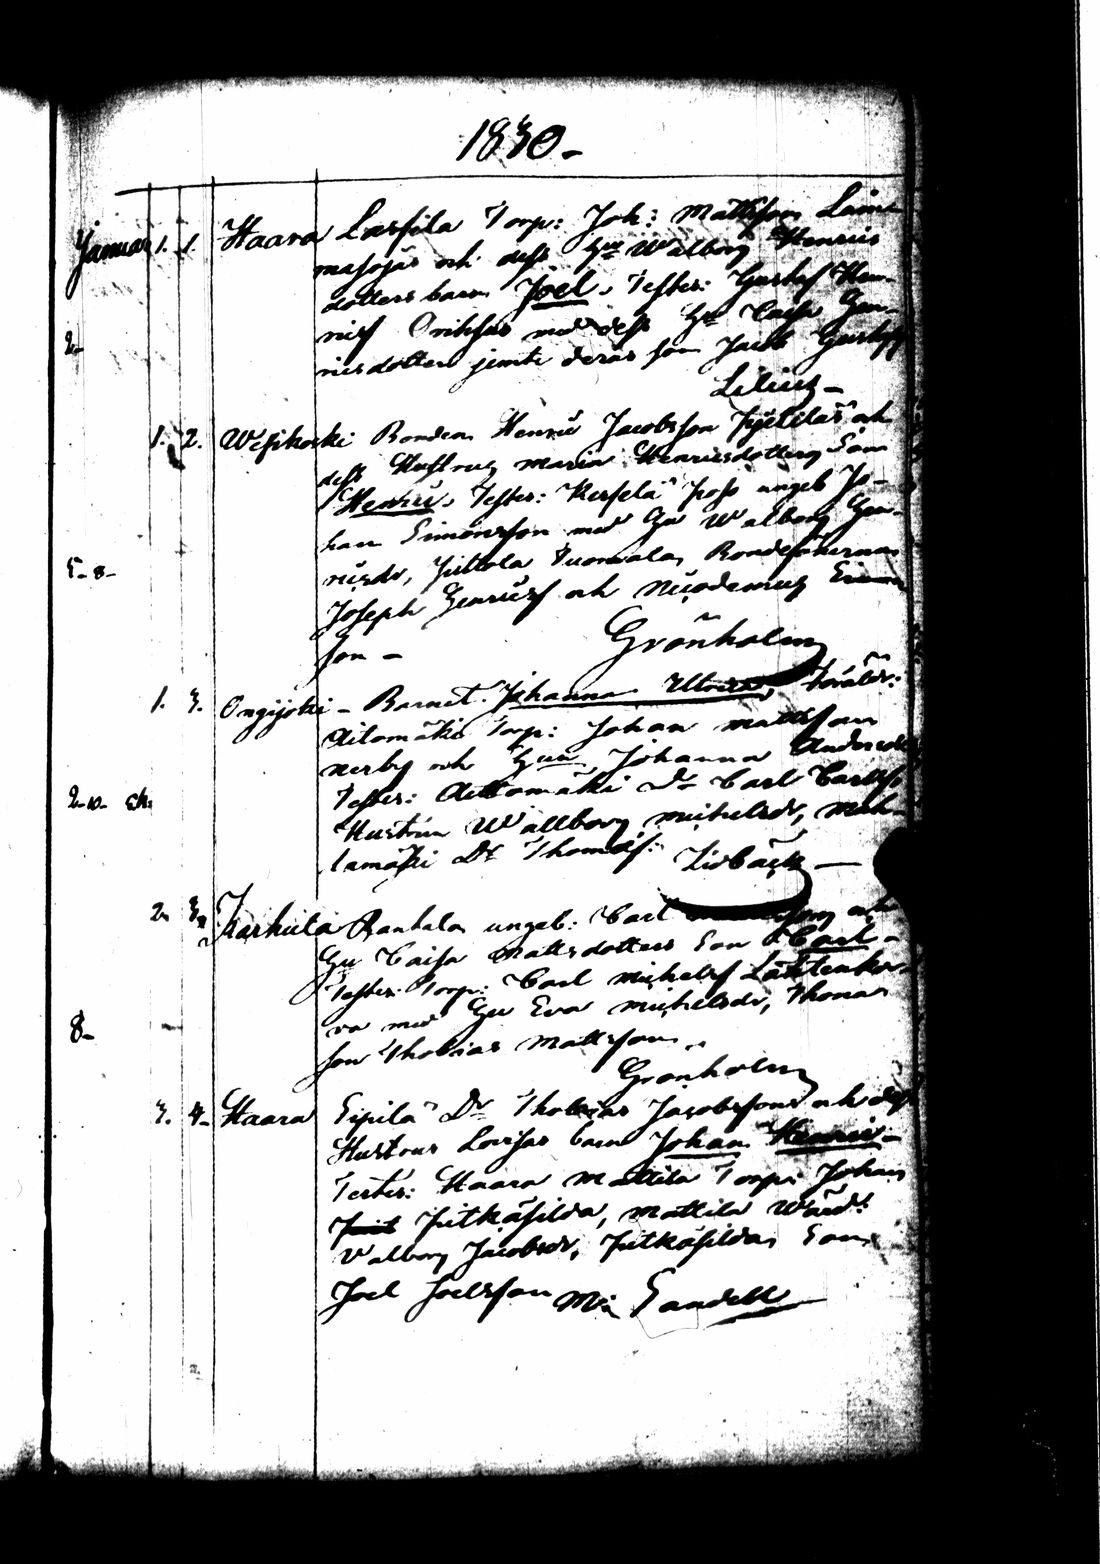 1830.-
Januar 1. 1. Haara Torp: Joh: Mattsson
och dess Hu Walborg Henrics
dotters barn Joel. Tester: Gustaf Hen-
rics med dess Hu Caisa Hen-
2.
ricsdotter jemte deras son Jacob Gustafs
Lilius -
1. 2. Wesikoski Bonden Henric Jacobsson och
dess Hustrus Maria Henricsdotters Son
Henric. Tester: ungeb Jo-
han Simonsson med Hu Walborg Hen-
5-8- ricsdr, Juttola Tuomala, Bondesönerna
Joseph Henricss och Nicodemus Simon
son - Grönholm
1. 3. Ongijoki - Barnet Johanna Ulrica, Föräldr:
Aitomäki Torp: Johan Mattsson
och Hun Johanna Andersdr
2-10- Tester: Aittamäki Dr Carl Carlss
Hustrun Wallborg Michelsdr, Mah-
lamäki Dr Thomas: Lidbäck -
2. 3. Karhula Rankala ungeb: Carl och
Hu Caisa Mattsdotters Son Carl -
Tester: Torp: Carl Michelss
ra med Hu Eva Michelsdr, Thomas
8-
son Thobias Mattsson.
Grönholm
3. 4. Haara Sipilä Dr Thobias Jacobssons och dess
Hustrus Lovisas barn Johan Henric -
Tester: Haara Mattila Torp: Johan
Jutkäsilda, Mattila Wärd:
Valborg Jacobsdr, Jutkäsildas Son
Joel Joelsson M: Sandell